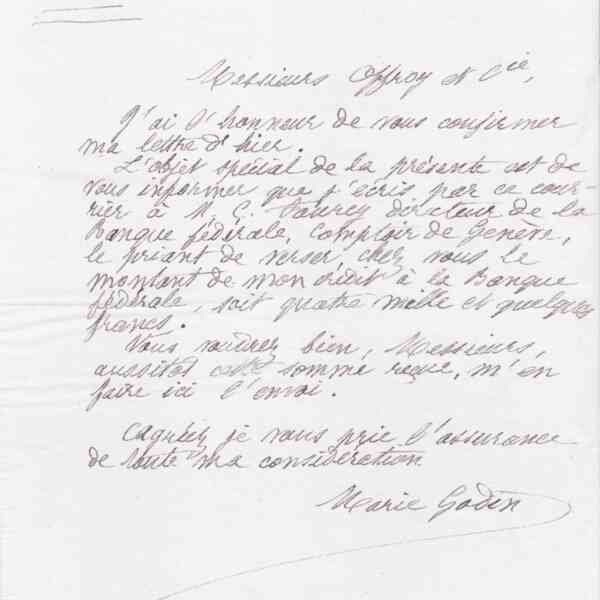 Messieurs Offroy et Cie,
J'ai l'honneur de vous confirmer
ma lettre d'hier.
L'objet spécial de la présente est de
vous informer que j'écris par ce cour-
rier à M. G. directeur de la
Banque fédérale, Comptoir de Genève,
le priant de verser, chez vous le
montant de mon crédit à la Banque
fédérale, soit quatre mille et quelques
francs.
Vous voudrez bien, Messieurs,
aussitôt cette somme reçue, m'en
faire ici l'envoi.
Agréez je vous prie l'assurance
de toute ma considération
Marie Godin